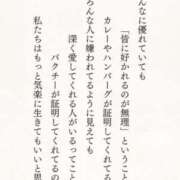 んなに優れていても
「皆に好かれるのが無理」ということ
カレーやハンバーグが証明してくれてる
ろんな人に嫌われてるように見えても
深く愛してくれる人がいるってこと
パクチーが証明してくれてるの
私たちはもっと気楽に生きてもいいと思